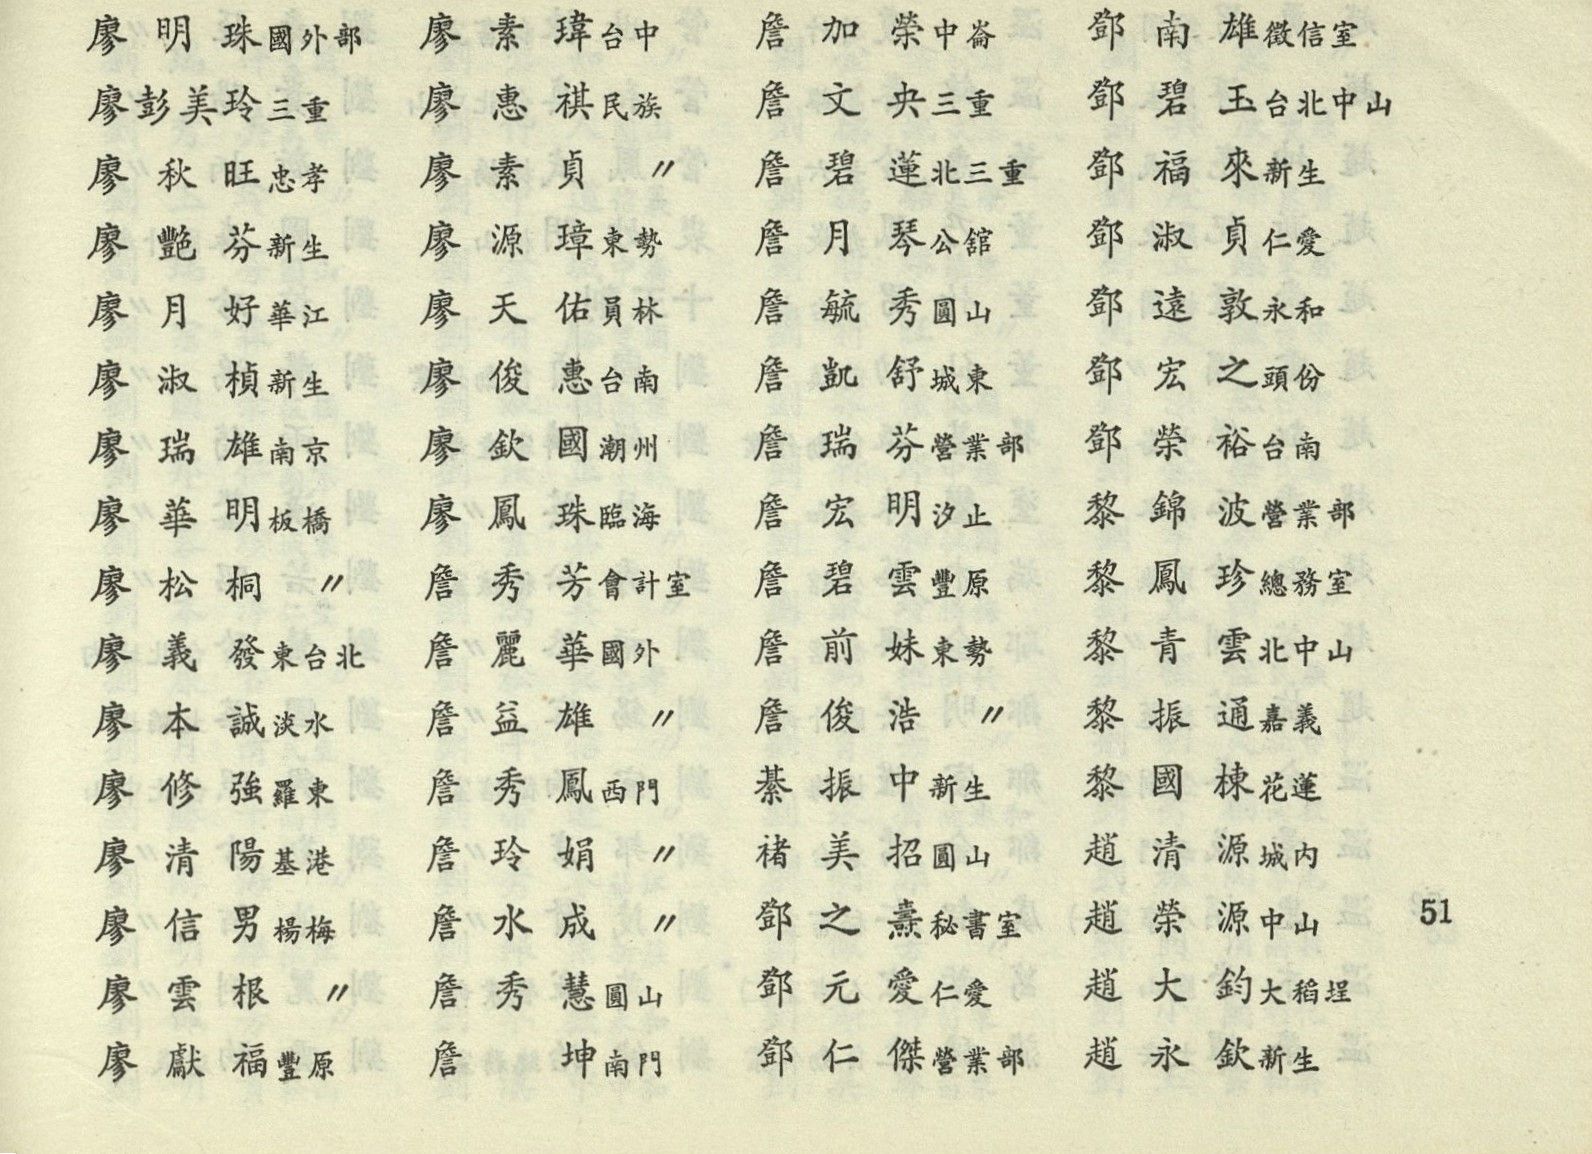 廖明珠國外部
廖彭美玲三重
廖秋旺忠孝
廖艷芬新生
廖月好華江
廖淑楨新生
廖瑞雄南京
廖華明板橋
廖松桐〃
廖義發東台北
廖本誠淡水
廖修強羅東
廖清陽基港
廖信男楊梅
廖雲根〃
廖獻福豐原
廖素瑋台中
廖惠祺民族
廖素貞〃
廖源璋東勢
廖天佑員林
廖俊惠台南
廖欽國潮州
廖鳳珠臨海
詹秀芳會計室
詹麗華國外
詹益雄〃
詹秀鳳西門
詹玲娟〃
詹水成〃
詹秀慧圓山
詹坤南門
詹加榮中崙
詹文央三重
詹碧蓮北三重
詹月琴公舘
詹毓秀圓山
詹凱舒城東
詹瑞芬營業部
詹宏明汐止
詹碧雲豐原
詹前妹東勢
詹俊浩〃
綦振中新生
褚美招圓山
鄧之燾秘書室
鄧元愛仁愛
鄧仁傑營業部
鄧南雄徵信室
鄧碧玉台北中山
鄧福來新生
鄧淑貞仁愛
鄧遠敦永和
鄧宏之頭份
鄧榮裕台南
黎錦波營業部
黎鳳珍總務室
黎青雲北中山
黎振通嘉義
黎國棟花蓮
趙清源城內
趙榮源中山
趙大鈞大稻埕
趙永欽新生
51